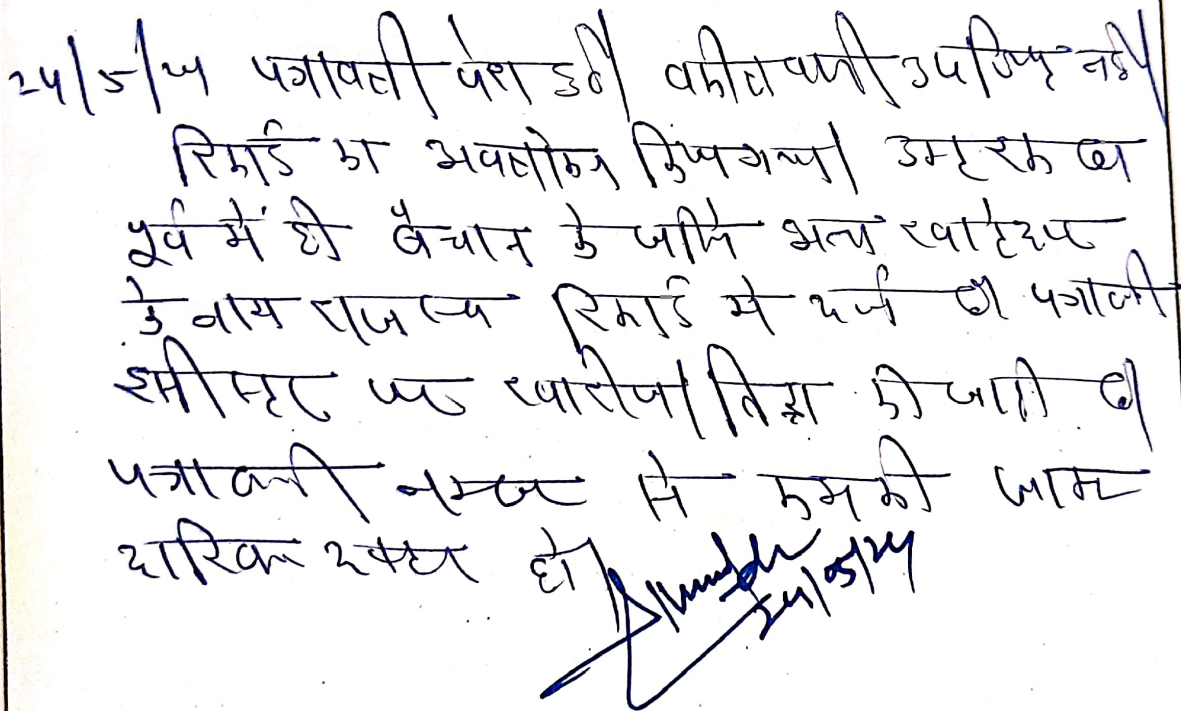 24/5/24 पत्रावली पेश हुई। वकील प्रार्थी उपस्थित नहीं।
रिकार्ड का अवलोकन किया गया।
पूर्व में ही बैचान के जरिये अन्य खातेदार
के नाम राजस्व रिकार्ड में दर्ज है। पत्रावली
इसी स्टेट पर खारीज की जाती है।
पत्रावली नम्बर से कम की जाकर
दाखिल दफ्तर हो।
24/05/24